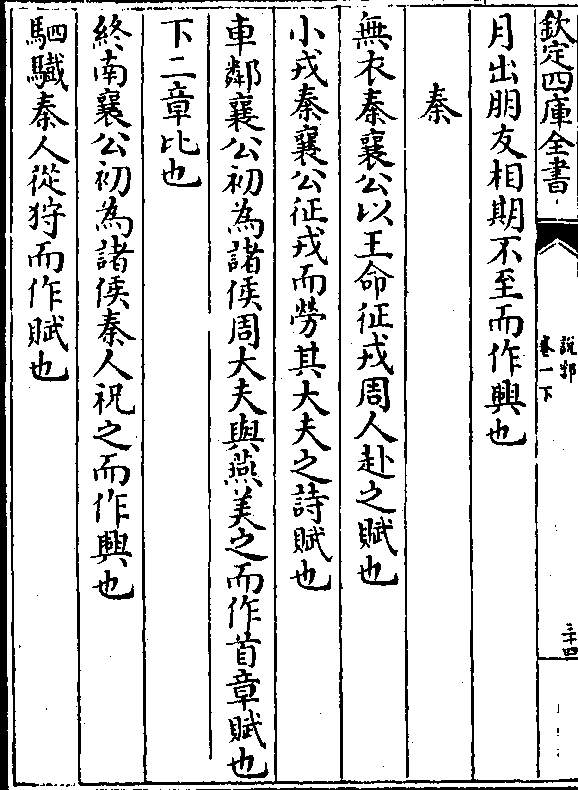 欽定四庫全書
說郛
卷一下
三十四
月出朋友相期不至而作興也
秦
無衣秦襄公以王命征戎周人赴之賦也
小戎秦襄公征戎而勞其大夫之詩賦也
車鄰襄公初為諸侯周大夫與燕美之而作首章賦也
下二章比也
終南襄公初為諸侯秦人祝之而作興也
駟驖秦人從狩而作賦也